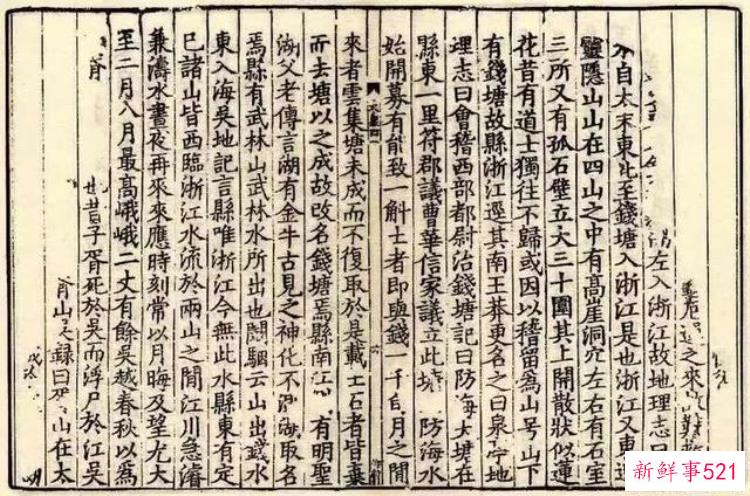 之來
左入浙江故地理志曰
自太末東北至錢塘入浙江是也浙江又東逕
靈隱山山在四山之中有髙崖洞穴左右有石室
三所又有孤石壁立大三十圍其上開散狀似蓮
花昔有道士獨往不歸或因以稽留為山号山下
有錢塘故縣浙江逕其南王莽更名之曰泉亭地
理志曰會稽西部都尉治錢塘記曰防海大塘在
縣東一里符郡議曹華信家議立此塘防海水
始開募有能致一斛土者即與錢一千旬月之間
來者雲集塘未成而不復取於是載土石者皆棄
而去塘以之成故改名錢塘焉縣南江有明聖
湖父老傳言湖有金牛古見之神化不測湖取名
焉縣有武林山武林水所出也闞駰云山出錢水
東入海吳地記言縣唯浙江今無此水縣東有定
巳諸山皆西臨浙江水流於兩山之間江川急濬
兼濤水晝夜再來來應時刻常以月晦及望尤大
至二月八月最高峨峨二丈有餘吳越春秋以為
胥也昔子胥死於吳而浮尸於江吳
胥山錄曰山在太
新鲜事521